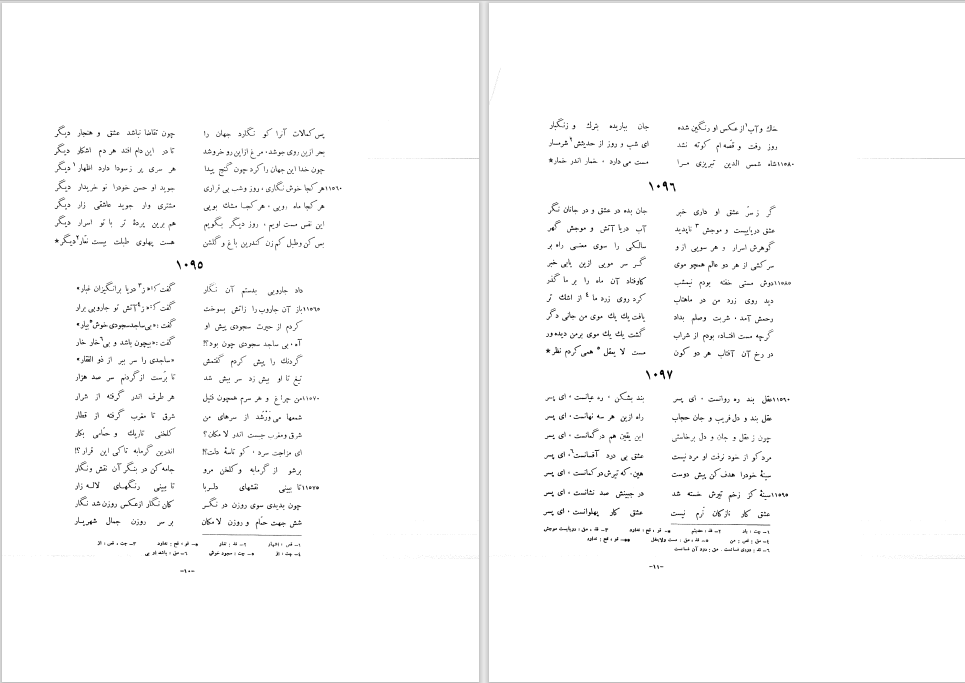 پس کمالات آنرا کو نگارد جهان را چون تقاضا نباشد عشق و هنجار دیگر
بحر ازین روی جوشد، مرغ ازاین رو خروشد تا در این دام افتد هر دم اشکار دیگر
چون خدا این جهان را کرد چون گنج پیدا هر سری پر ز سودا دارد اظهار۱ دیگر
۱۱۵۶۰هرکجا خوش نگاری، روز وشب بی قراری جوید او حسن خودرا نو خریدار دیگر
هرکجا ماه رویی، هرکجا مشک بویی مشتری وار جوید عاشقی زار دیگر
این نفس مست اویم، روز دیگر بگویم هم برین پردهٔ تر با تو اسرار دیگر
بس کن وطبل کم زن کندرین باغ و گلشن هست پهلوی طبلت بیست نعّار۲دیگر*
۱۰۹۵
داد جاروبی بدستم آن نگار گفت: «کز۳ دریا برانگیزان غبار»
۱۱۵۶۵باز آن جاروب را زآتش بسوخت گفت: «کز۴آتش تو جاروبی برآر
کردم از حیرت سجودی پیش او گفت: «بی‌ساجدسجودی‌خوش۵بیار»
آه، بی ساجد سجودی چون بود؟! گفت: «بیچون باشد و بی۶خار خار
گردنك را پیش کردم گفتمش «ساجدی را سر ببر از ذو الفقار»
تیغ تا او بیش زد سر بیش شد تا بُرست ازگردنم سر صد هزار
۱۱۵۷۰من چراغ و هر سرم همچون فتیل هر طرف اندر گرفته از شرار
شمعها می وَرْشد از سرهای من شرق تا مغرب گرفته از قطار
شرق ومغرب چیست اندر لا مکان؟ گلخنی تاریك و حمّامی بکار
ای مزاجت سرد، کو تاسهٔ دلت؟! اندرین گرمابه تاکی این قرار؟!
برشو از گرمابه و گلخن مرو جامه کن در بنگر آن نقش ونگار
۱۱۵۷۵تا ببینی نقشهای دلربا تا ببینی رنگهای لاله زار
چون بدیدی سوی روزن در نگر کان نگار ازعکس روزن شد نگار
شش جهت حمّام و روزن لا مکان بر سر روزن جمال شهریار
۱ـ فص: اظهار ۳ـ چت، فص: از
۴ـ چت: از ۵ـ چت: سجود خوش
-۱۰-
خاك وآب۱ازعکس او رنگین شده جان بباریده بترك و زنگبار
روز رفت و قصّه ام کوته نشد ای شب و روز از حدیثش۲شرمسار
۱۱۵۸۰شاه شمس الدین تبریزی مرا مست می دارد، خمار اندر خمار*
۱۰۹۶
گر ز سرّ عشق او داری خبر جان بده در عشق و در جانان نگر
عشق دریاییست و موجش۳ناپدید آب دریا آتش و موجش گهر
گوهرش اسرار و هر سویی ازو سالکی را سوی معنی راه بر
سر کشی از هر دو عالم همچو موی گر سر مویی ازین یابی خبر
۱۱۵۸۵دوش مستی خفته بودم نیمشب کاوفتاد آن ماه را بر ما گذر
دید روی زرد من در ماهتاب کرد روی زرد ما۴از اشك تر
رحمش آمد، شربت وصلم بداد یافت یك یك موی من جانی دگر
گرچه مست افتاده بودم از شراب گشت یك یك موی برمن دیده ور
در رخ آن آفتاب هر دو کون مست لا یعقل۵ همی کردم نظر*
۱۰۹۷
۱۱۵۹۰عقل بند ره روانست، ای پسر بند بشکن، ره عیانست، ای پسر
عقل بند و دل فریب و جان حجاب راه ازین هر سه نهانست، ای پسر
چون ز عقل و جان و دل برخاستی این یقین هم در گمانست، ای پسر
مرد کو از خود نرفت او مرد نیست عشق بی درد آفسانست۶، ای پسر
سینهٔ خودرا هدف کن پیش دوست هین، که تیرش در کمانست، ای پسر
۱۱۵۹۵سینهٔ کز زخم تیرش خسته شد در جبینش صد نشانست، ای پسر
عشق کار نازکان نرم نیست عشق کار پهلوانست، ای پسر
۱ـ چت: باد
۴ـ مق، فص: من
-۱۱-